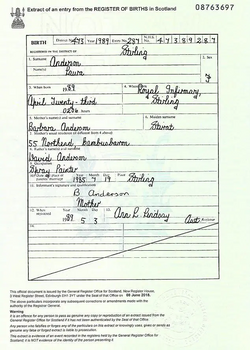 Extract of an entry from the REGISTER OF BIRTHS in Scotland 08763697
BIRTH District No. 473 Year 1989 Entry No. 287 N.H.S. No.
REGISTERED IN THE DISTRICT OF Stirling
1. Surname Anderson 2. Sex
Name(s) Laura F
3. When born 1989 4. Where born Royal Infirmary,
April Twenty-third Stirling
hours
5. Mother's name(s) and surname 6. Maiden surname
Barbara Anderson Stewart
55 Northend, Bambusbarn
David Anderson
Spray Painter
Year Month Day
Stirling
B Anderson
Mother
Year Month Day
1989 5 3 Ann R. Lindsay Asst Registrar
This official document is issued by the General Register Office for Scotland, New Register House,
3 West Register Street, Edinburgh EH1 3YT under the Seal of that Office on 09 June 2018.
The above particulars incorporate any subsequent corrections or amendments made with the
authority of the Registrar General.
Warning
It is an offence for any person to pass as genuine any copy or reproduction of an extract issued from the
General Register Office for Scotland if it has not been authenticated by the Seal of that Office.
Any person who falsifies or forges any of the particulars on this extract or knowingly uses, gives or sends as
genuine any false or forged extract is liable to prosecution.
This extract is evidence of an event recorded in the registers held by the General Register Office for
Scotland. It is NOT evidence of the identity of the person presenting it